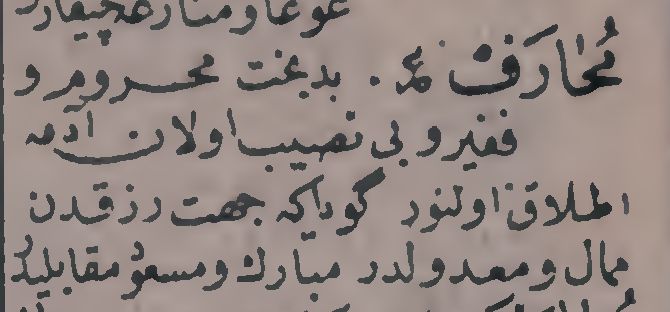 غوغا و منازعه چیقارر
مُحَارَف ع. بدبخت محروم و
فقیر و بی نصیب اولان آدمه
اطلاق اولنور گویاکه جهت رزقدن
ممال و معدولدر مبارك و مسعود مقابلیدر